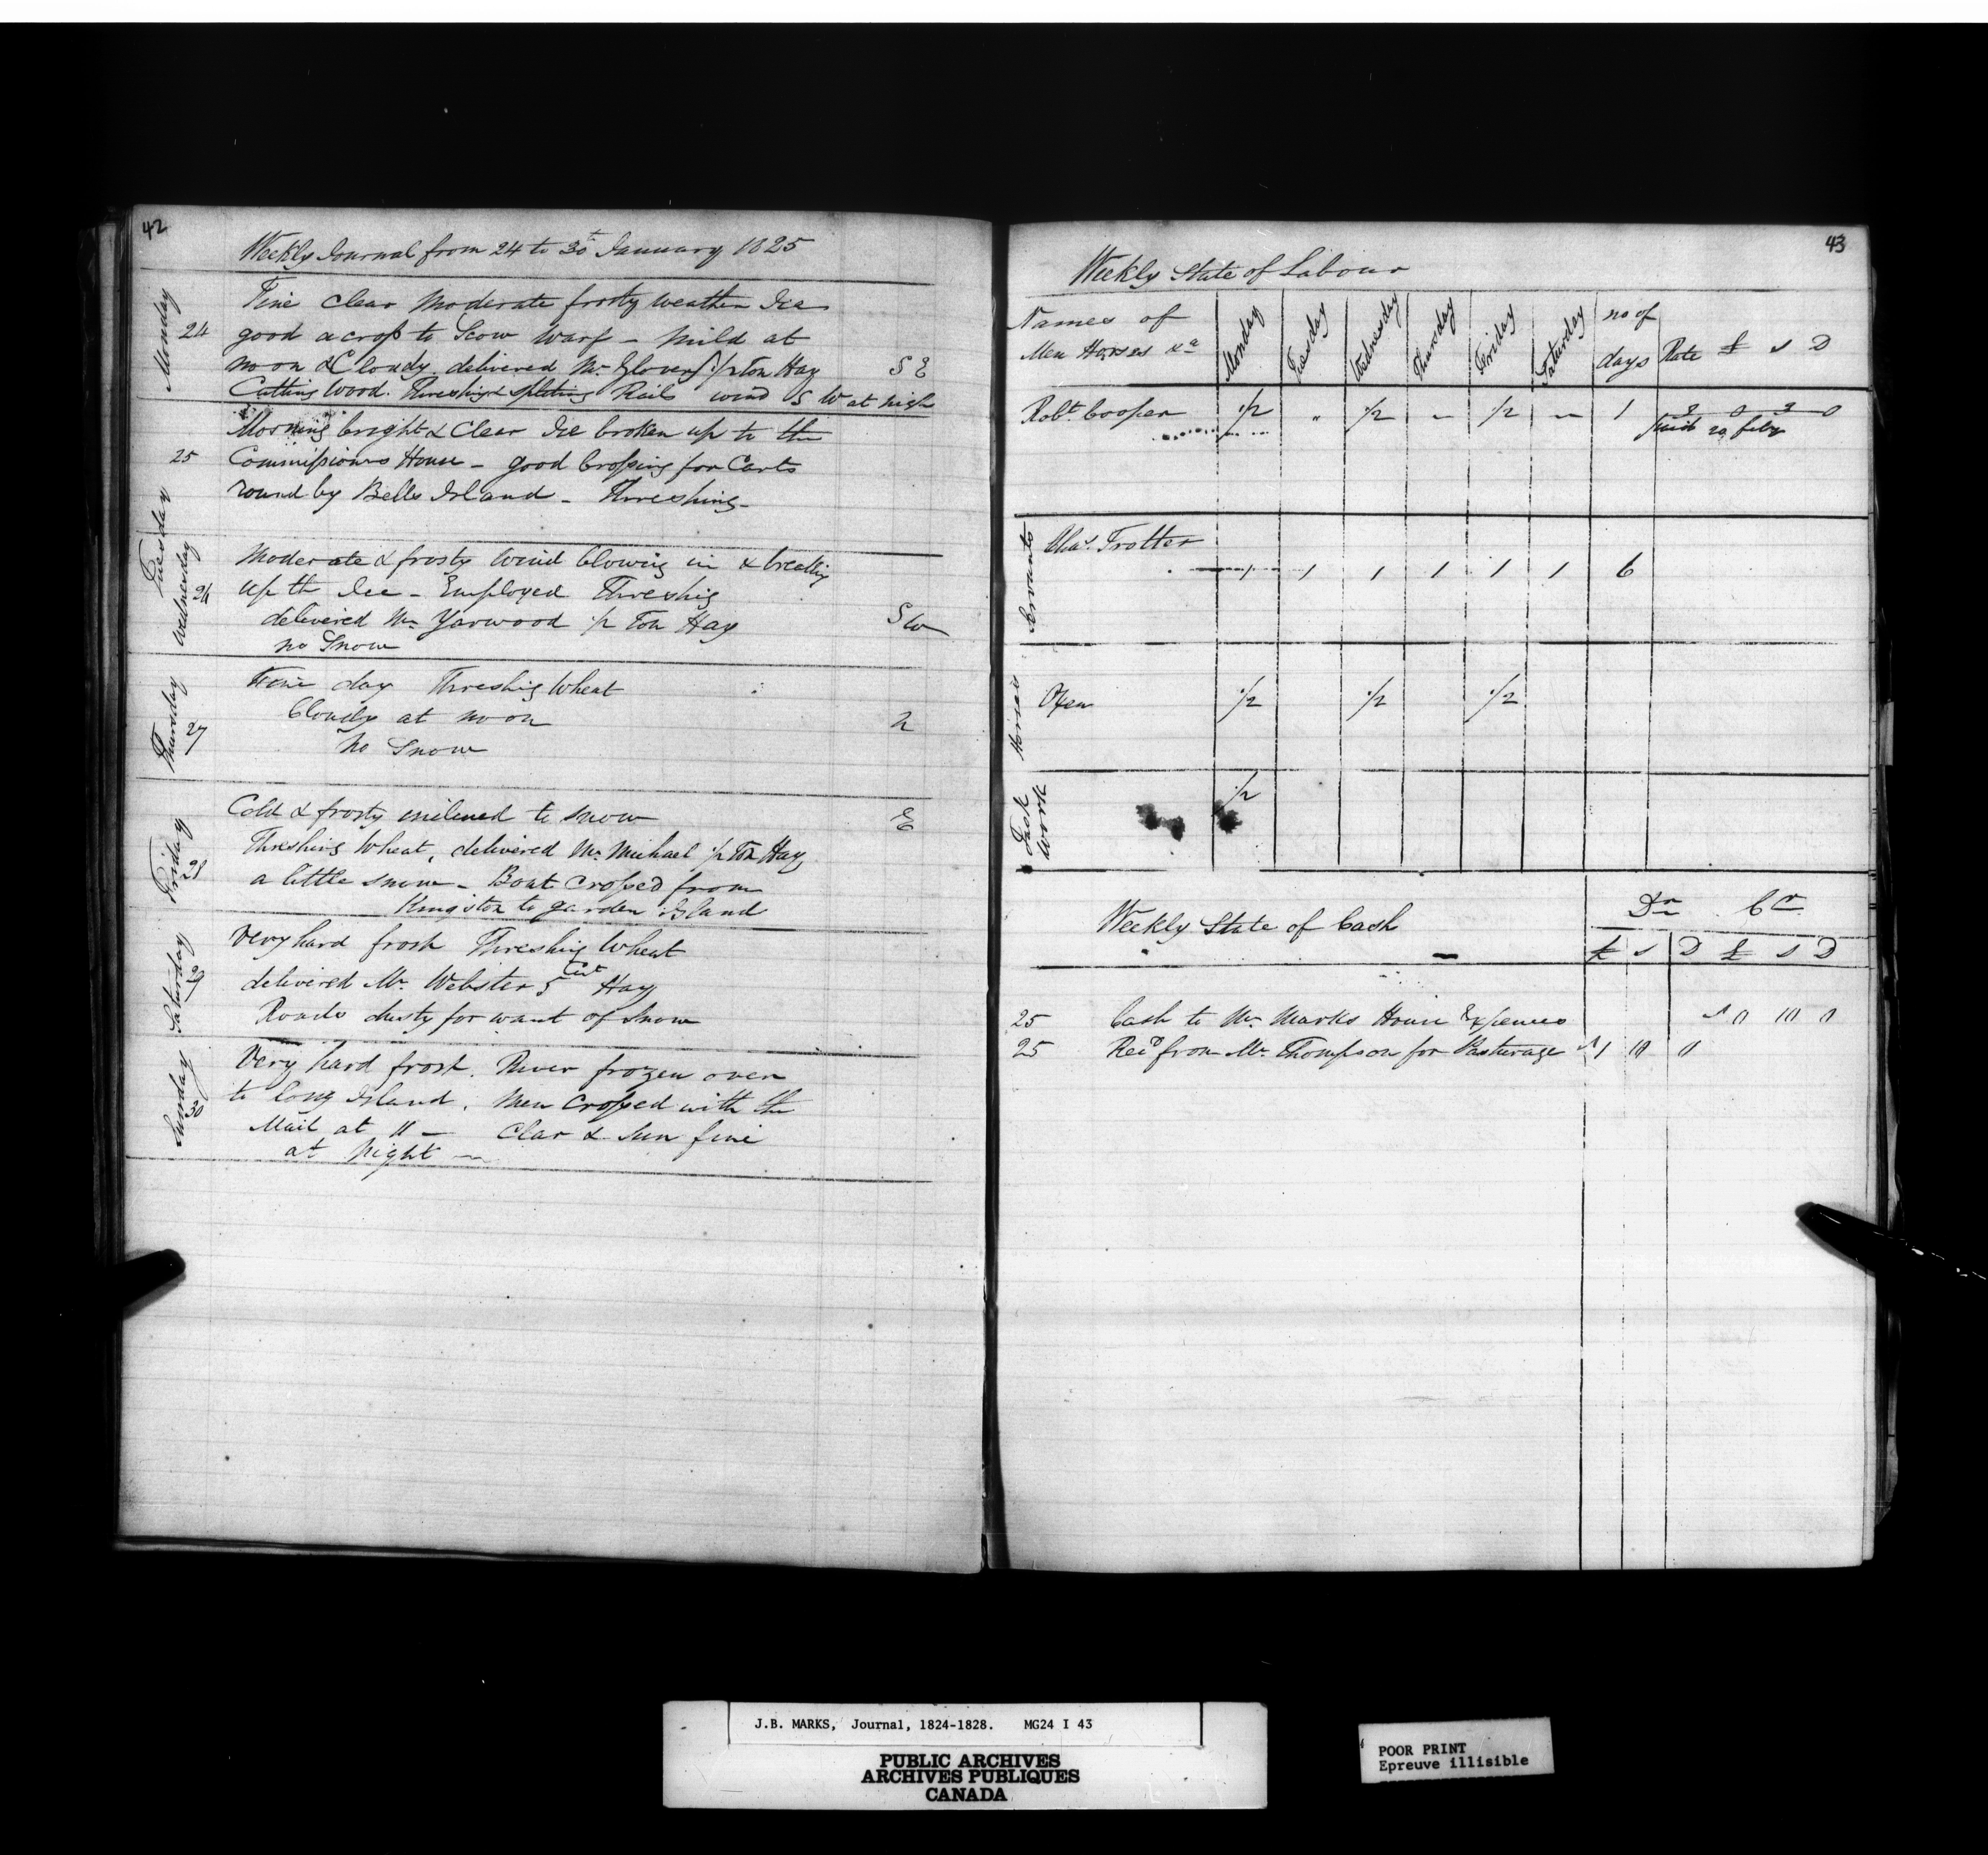 42
Weekly Journal from 24 to 30t January 1825
Monday 24
Fine Clear Moderate frosty weather Ice
good across to Scow Warf - Mild at
noon & Cloudy. delivered Mr Glover 1/2 Ton Hay S E
Cutting Wood. Threshing & Spliting Rails wind S W at nigh
Tuesday 25
Morning bright & Clear Ice broken up to the
Commissioners House - good Crossing for Carts
round by Bells Island - Threshing -
Wednesday 26
Moderate & frosty Wind blowing in & breakig
up th Ice - Employed Threshig
delivered Mr Yarwood 1/2 Ton Hay S W
no Snow
Thursday 27
Fine day Threshig Wheat
Cloudy at noon N
No Snow
Friday 28
Cold & frosty inclined to snow E
Threshing Wheat, delivered Mr Michael 1/2 Ton Hay
a little snow - Boat Crossed from
Kingston to garden Island
Saturday 29
Very hard frost Threshig Wheat
delivered Mr Webster 5 Cwt Hay
Roads dusty for want of Snow
Sunday 30
Very hard frost. River frozen over
to long Island. Men Crossed with the
Mail at 11 - Clar & Sun fine
at Night -
43
Weekly State of Labour
Names of Men Horses &a Monday Tuesday Wednesday Thursday Friday Saturday no of days Rate £ s D
Robt Cooper 1/2 " 1/2 - 1/2 - 1 2 0 3 0
paid 20 feby
Servants
Chas Trotter
1 1 1 1 1 1 6
Horses
Oxen 1/2 1/2 1/2
Task Work
1/2
Weekly State of Cash Dr Cr
£ s D £ s D
25 Cash to Mr Marks House Expences 10 0
25 Recd from Mr Thompson for Pasturage 1 10 0
J.B. MARKS, Journal, 1824-1828. MG24 I 43
PUBLIC ARCHIVES
ARCHIVES PUBLIQUES
CANADA
POOR PRINT
Epreuve illisible